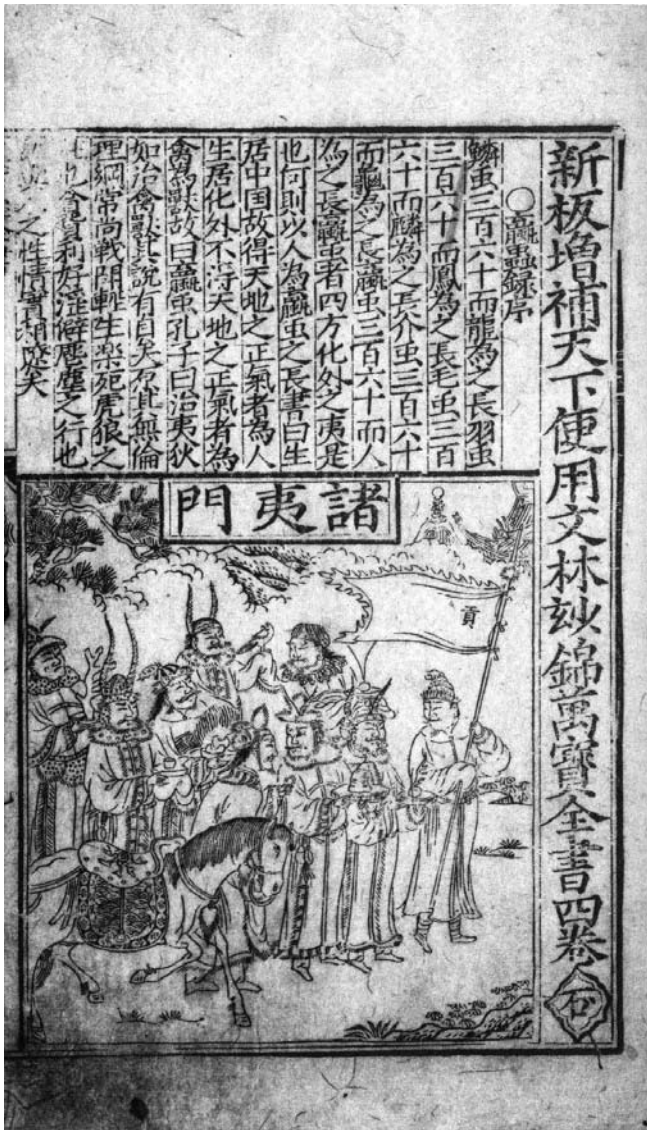 新板増補天下便用文林玅錦萬寶全書四卷
石
○臝蟲録序
鱗虫三百六十而龍為之長羽虫
三百六十而鳳為之長毛虫三百
六十而麟為之長介虫三百六十
而龜為之長臝虫三百六十而人
為之長臝虫者四方化外之夷是
也何則以人為臝虫之長書曰生
居中国故得天地之正氣者為人
生居化外不淂天地之正氣者為
禽為獸故曰臝虫孔子曰治夷狄
如治禽獸其說有自矣夫其無倫
理綱常尚戰鬪輕生楽死虎狼之
貪貨利好淫僻麀塵之行也
之性情實相遼矣
諸夷門
貢